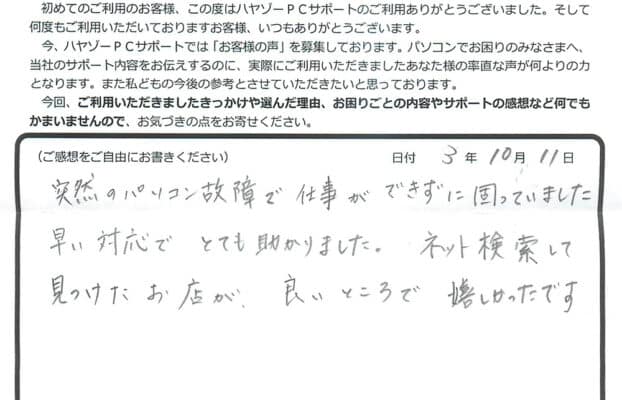 初めてのご利用のお客様、この度はハヤゾーPCサポートのご利用ありがとうございました。そして
何度もご利用いただいておりますお客様、いつもありがとうございます。
今、ハヤゾーPCサポートでは「お客様の声」を募集しております。パソコンでお困りのみなさまへ、
当社のサポート内容をお伝えするのに、実際にご利用いただきましたあなた様の率直な声が何よりの力
となります。また私どもの今後の参考とさせていただきたいと思っております。
今回、ご利用いただきましたきっかけや選んだ理由、お困りごとの内容やサポートの感想など何でも
かまいませんので、お気づきの点をお寄せください。
（ご感想をご自由にお書きください） 日付 3年10月11日
突然のパソコン故障で仕事ができずに困っていました
早い対応でとても助かりました。ネット検索して
見つけたお店が、良いところで嬉しかったです